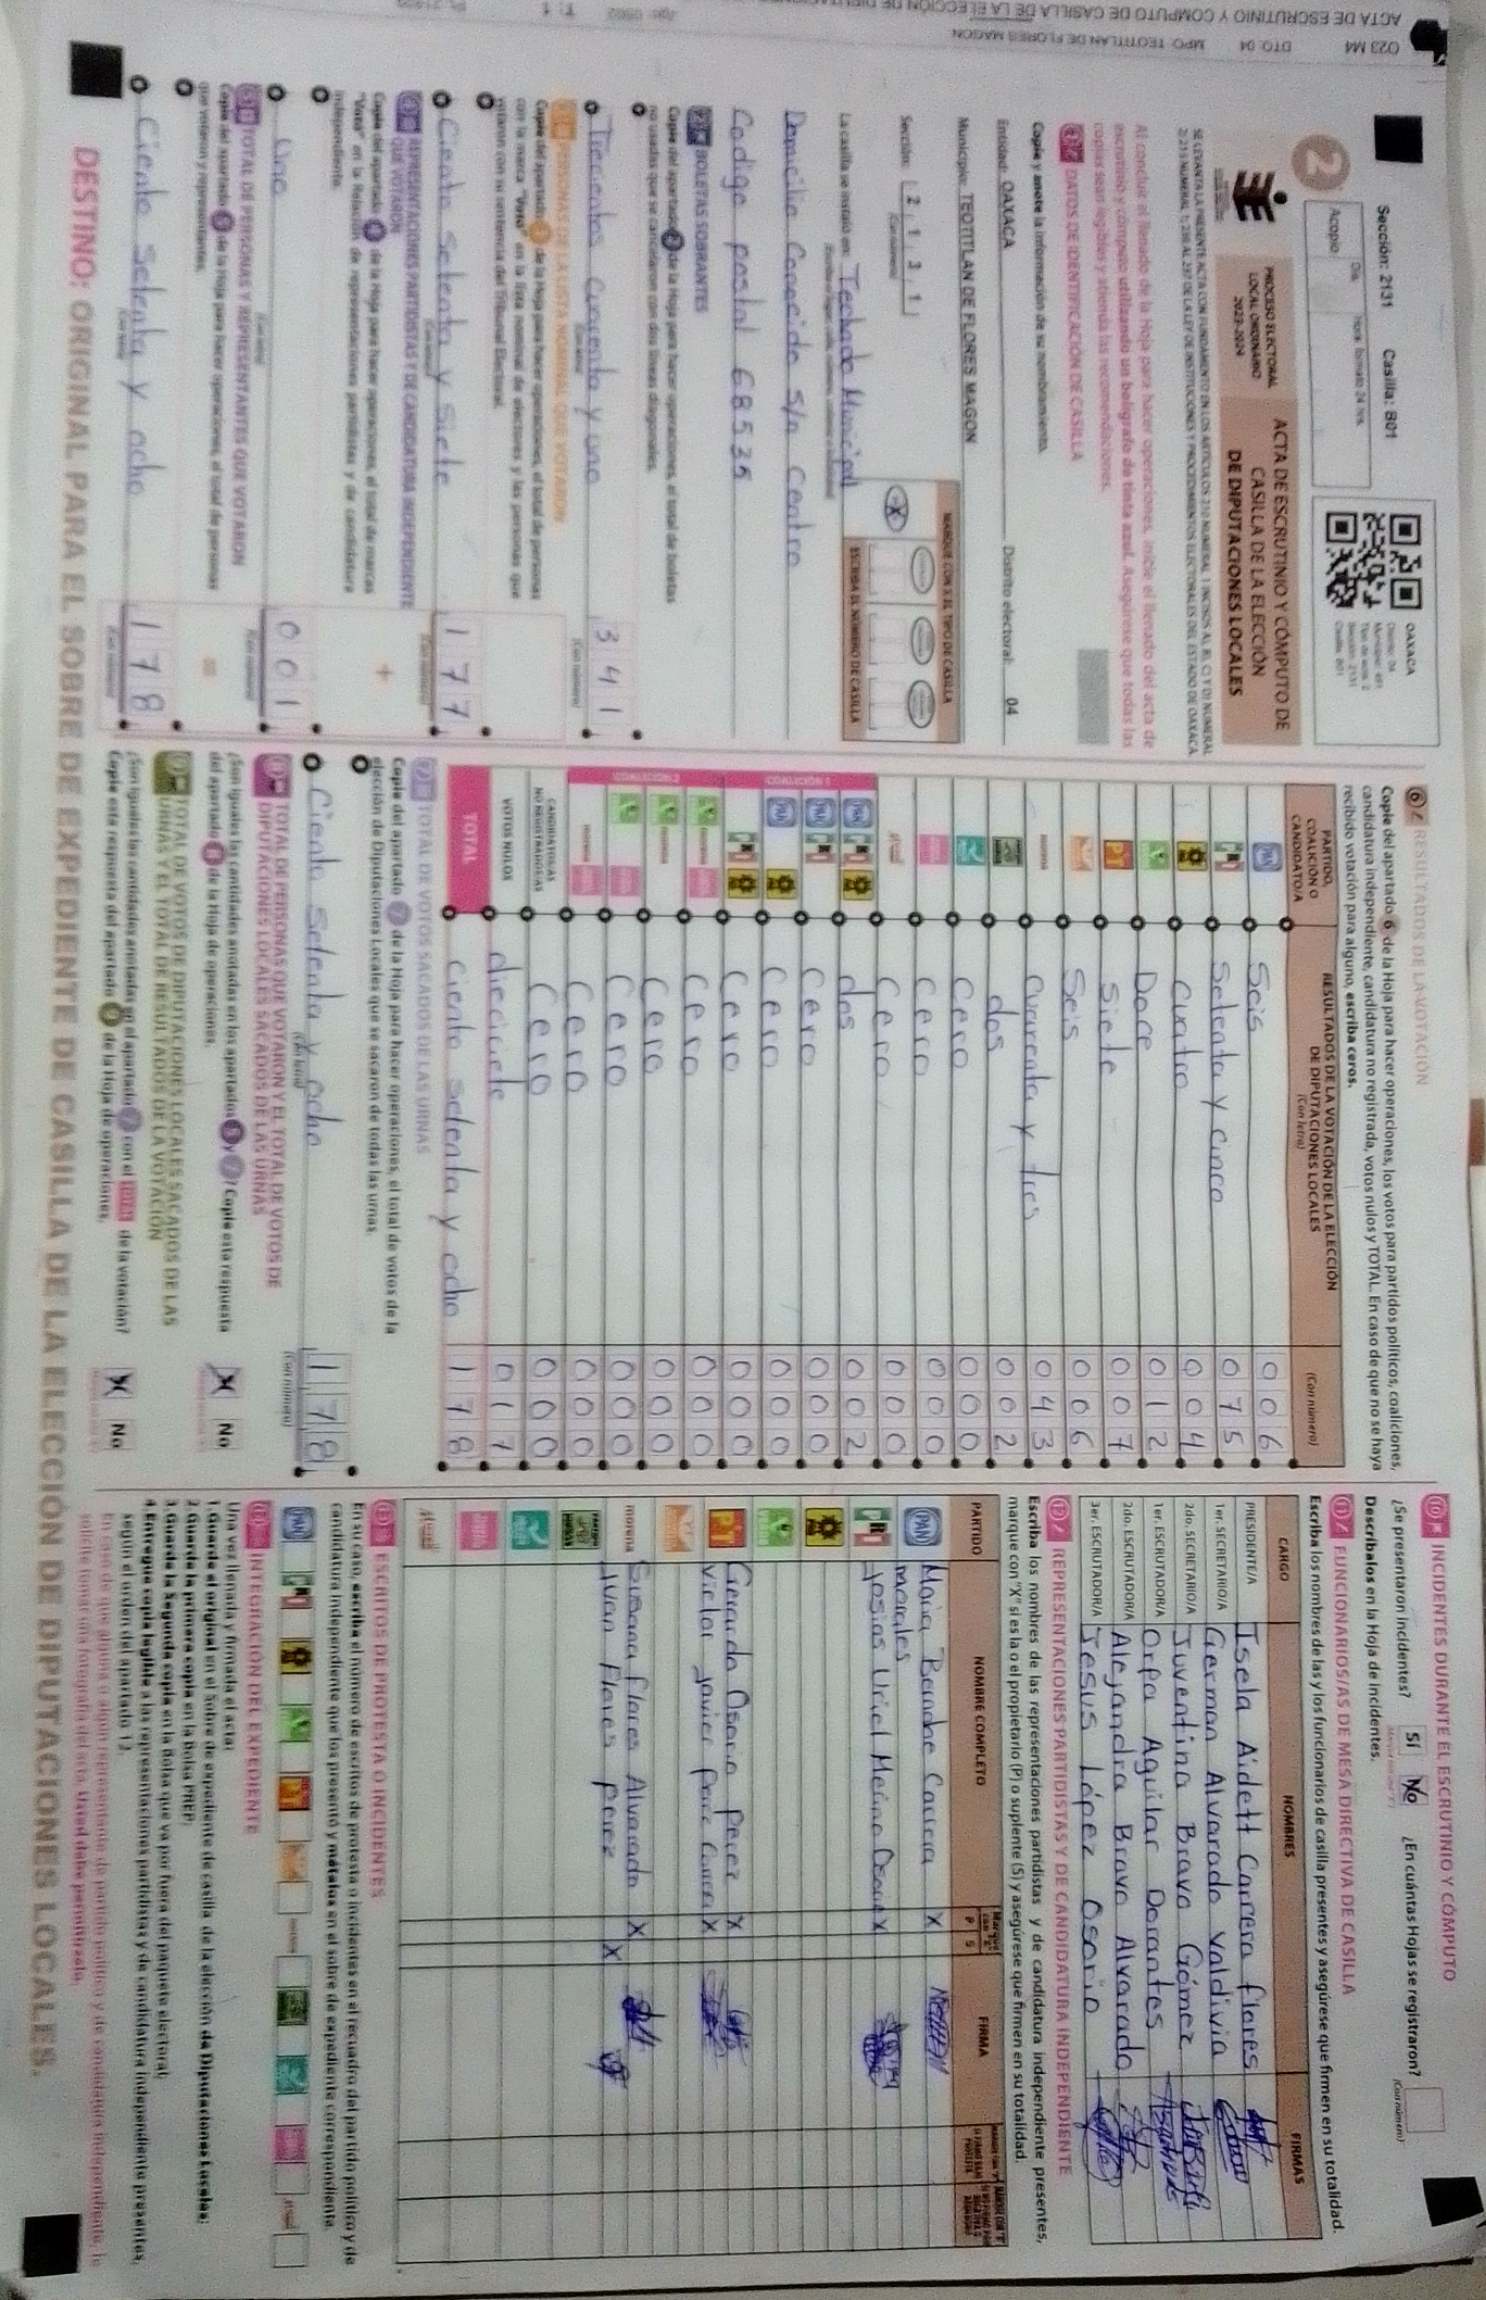 Sección: 2131 Casilla: B01
Acopio
Día
Hora: formato 24 hrs.
OAXACA
2
PROCESO ELECTORAL
LOCAL ORDINARIO
2023-2024
ACTA DE ESCRUTINIO Y CÓMPUTO DE
CASILLA DE LA ELECCIÓN
DE DIPUTACIONES LOCALES
Al concluir el llenado de la Hoja para hacer operaciones, inicie el llenado del acta de
escrutinio y cómputo utilizando un bolígrafo de tinta azul. Asegúrese que todas las
copias sean legibles y atienda las recomendaciones.
DATOS DE IDENTIFICACIÓN DE CASILLA
Copie y anote la información de su nombramiento.
Entidad: OAXACA Distrito electoral: 04
Municipio: TEOTITLAN DE FLORES MAGON
Sección: 2 1 3 1
MARQUE CON X EL TIPO DE CASILLA
ESCRIBA EL NÚMERO DE CASILLA
La casilla se instaló en: Techado Municipal
Domicilio Conocido S/n Centro
Codigo postal 68535
BOLETAS SOBRANTES
Copie del apartado de la Hoja para hacer operaciones, el total de boletas
no usadas que se cancelaron con dos líneas diagonales.
Trecientos cuarenta y uno 3 4 1
PERSONAS DE LA LISTA NOMINAL QUE VOTARON
Copie del apartado de la Hoja para hacer operaciones, el total de personas
con la marca "Votó" en la lista nominal de electores y las personas que
votaron con su sentencia del Tribunal Electoral.
Ciento Setenta y Siete 1 7 7
REPRESENTACIONES PARTIDISTAS Y DE CANDIDATURA INDEPENDIENTE
QUE VOTARON
Copie del apartado de la Hoja para hacer operaciones, el total de marcas
"Votó" en la Relación de representaciones partidistas y de candidatura
independiente.
Uno 0 0 1
TOTAL DE PERSONAS Y REPRESENTANTES QUE VOTARON
Copie del apartado de la Hoja para hacer operaciones, el total de personas
que votaron y representantes.
Ciento Setenta y ocho 1 7 8
RESULTADOS DE LA VOTACIÓN
Copie del apartado 6 de la Hoja para hacer operaciones, los votos para partidos políticos, coaliciones,
candidatura independiente, candidatura no registrada, votos nulos y TOTAL. En caso de que no se haya
recibido votación para alguno, escriba ceros.
PARTIDO,
COALICIÓN O
CANDIDATO/A
RESULTADOS DE LA VOTACIÓN DE LA ELECCIÓN
DE DIPUTACIONES LOCALES
(Con letra)
(Con número)
PAN Seis 0 0 6
PRI Setenta y cinco 0 7 5
cuatro 0 0 4
Doce 0 1 2
PT Siete 0 0 7
Seis 0 0 6
morena cuarenta y tres 0 4 3
dos 0 0 2
Cero 0 0 0
Cero 0 0 0
Cero 0 0 0
PAN PRI dos 0 0 2
PAN PRI Cero 0 0 0
PAN Cero 0 0 0
PRI Cero 0 0 0
morena Cero 0 0 0
morena Cero 0 0 0
Cero 0 0 0
morena Cero 0 0 0
CANDIDATOS/AS
NO REGISTRADOS/AS Cero 0 0 0
VOTOS NULOS dieciciete 0 1 7
TOTAL Ciento setenta y ocho 1 7 8
TOTAL DE VOTOS SACADOS DE LAS URNAS
Copie del apartado 7 de la Hoja para hacer operaciones, el total de votos de la
elección de Diputaciones Locales que se sacaron de todas las urnas.
Ciento Setenta y ocho 1 7 8
TOTAL DE PERSONAS QUE VOTARON Y EL TOTAL DE VOTOS DE
DIPUTACIONES LOCALES SACADOS DE LAS URNAS
¿Son iguales las cantidades anotadas en los apartados y ? Copie esta respuesta
del apartado de la Hoja de operaciones.
X No
TOTAL DE VOTOS DE DIPUTACIONES LOCALES SACADOS DE LAS
URNAS Y EL TOTAL DE RESULTADOS DE LA VOTACIÓN
¿Son iguales las cantidades anotadas en el apartado con el TOTAL de la votación?
Copie esta respuesta del apartado de la Hoja de operaciones.
X No
INCIDENTES DURANTE EL ESCRUTINIO Y CÓMPUTO
¿Se presentaron incidentes? SÍ No ¿En cuántas Hojas se registraron?
Descríbalos en la Hoja de incidentes.
FUNCIONARIOS/AS DE MESA DIRECTIVA DE CASILLA
Escriba los nombres de las y los funcionarios de casilla presentes y asegúrese que firmen en su totalidad.
CARGO NOMBRES FIRMAS
PRESIDENTE/A Isela Aidett Carrera flores
1er. SECRETARIO/A German Alvarado Valdivia
2do. SECRETARIO/A Juventina Bravo Gómez
1er. ESCRUTADOR/A Orfa Aguilar Dorantes
2do. ESCRUTADOR/A Alejandra Bravo Alvarado
3er. ESCRUTADOR/A Jesus López Osorio
REPRESENTACIONES PARTIDISTAS Y DE CANDIDATURA INDEPENDIENTE
Escriba los nombres de las representaciones partidistas y de candidatura independiente presentes,
marque con "X" si es la o el propietario (P) o suplente (S) y asegúrese que firmen en su totalidad.
PARTIDO NOMBRE COMPLETO P S FIRMA
PAN Maria Bernabe Carrera X
morales
PRI Josias Uriel Merino Osorio X
PT Gerardo Osorio perez X
Victor javier perez X
morena Susana flores Alvarado X
Juan Flores perez X
ESCRITOS DE PROTESTA O INCIDENTES
En su caso, escriba el número de escritos de protesta o incidentes en el recuadro del partido político y de
candidatura independiente que los presentó y métalos en el sobre de expediente correspondiente.
INTEGRACIÓN DEL EXPEDIENTE
Una vez llenada y firmada el acta:
1. Guarde el original en el Sobre de expediente de casilla de la elección de Diputaciones Locales;
2. Guarde la primera copia en la Bolsa PREP;
3. Guarde la Segunda copia en la Bolsa que va por fuera del paquete electoral;
4. Entregue copia legible a las representaciones partidistas y de candidatura independiente presentes,
según el orden del apartado 12.
En caso de que alguna o algún representante de partido político y de candidatura independiente, le
solicite tomar una fotografía del acta, Usted debe permitírselo.
DESTINO: ORIGINAL PARA EL SOBRE DE EXPEDIENTE DE CASILLA DE LA ELECCIÓN DE DIPUTACIONES LOCALES.
023 M4 DTO. 04 MPO. TEOTITLAN DE FLORES MAGON
ACTA DE ESCRUTINIO Y COMPUTO DE CASILLA DE LA ELECCIÓN DE